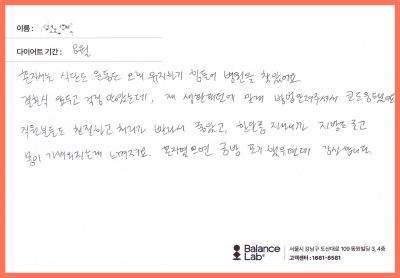 이름 :
다이어트 기간 : 8월
혼자서는 식단도 운동도 오래 유지하기 힘들어 병원을 찾았어요
결혼식 앞두고 걱정 많았는데, 제 생활패턴에 맞게 방법 알려주셔서 큰 도움됐어요
직원분들도 친절하고 처리가 빨라서 좋았고, 한달쯤 지나니까 지방도 줄고
몸이 가벼워지는게 느껴져요. 혼자였으면 금방 포기했을텐데 감사합니다.
Balance Lab
서울시 강남구 도산대로 109 동원빌딩 3, 4층
고객센터 : 1661-8581